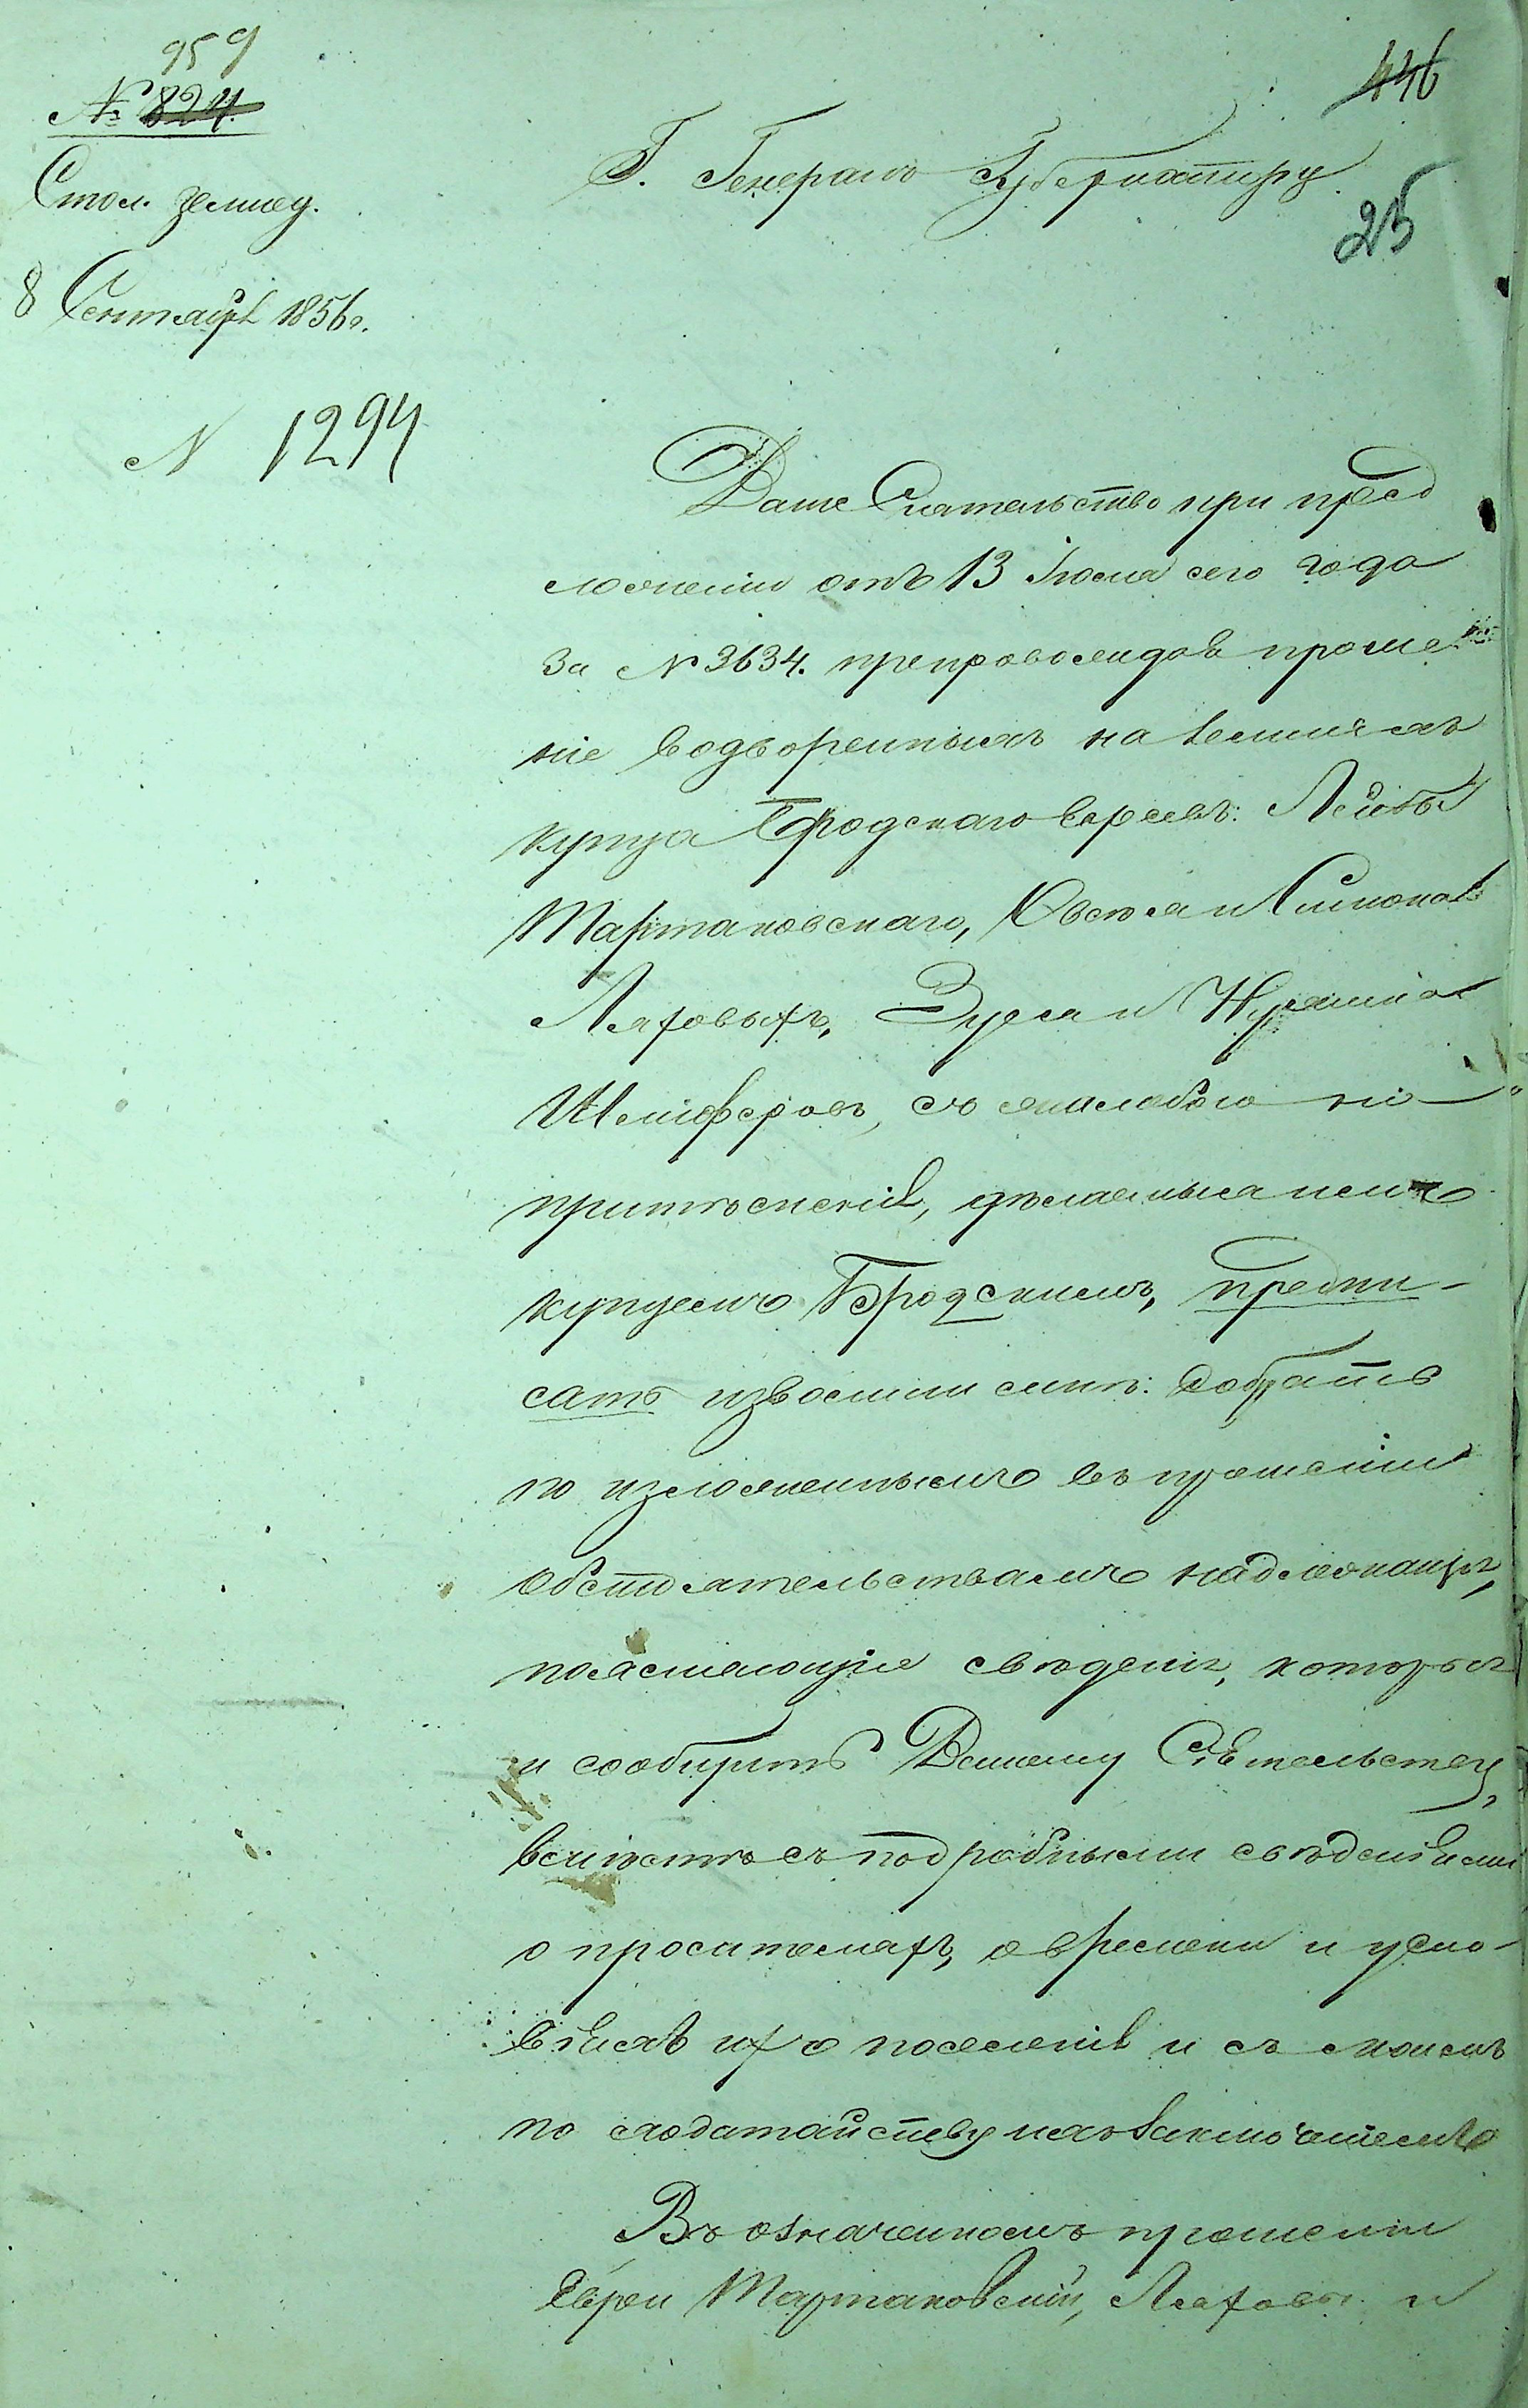 959
№ 824.
446
Стол. землед.
Г. Генералъ Губернатору
25
8 Сентября 1856 г.
N 1294
Ваше Сіятельство при пред
ложеніи отъ 13 Іюля сего года
за N 3634. препроводивъ проше
ніе водворенныхъ на земляхъ
купца Бродскаго Евреевъ: Лейбы
Тартаковскаго, и Симона
Ляховыхъ, Зуся и
съ жалобою на
притѣсненія, дѣлаемыя имъ
купцемъ Бродскимъ, предпи-
сать изволили мнѣ: собрать
по изложеннымъ въ прошеніи
обстоятельствамъ надлежащія,
поясняющія свѣденія, которыя
и сообщить Вашему Сіятельству,
вмѣстѣ съ подробными свѣденіями
о просителяхъ, о времени и усло-
віяхъ ихъ поселенія и съ моимъ
по ходатайству ихъ заключеніемъ
Въ означенномъ прошеніи
Евреи Тартаковскій, Ляховы и